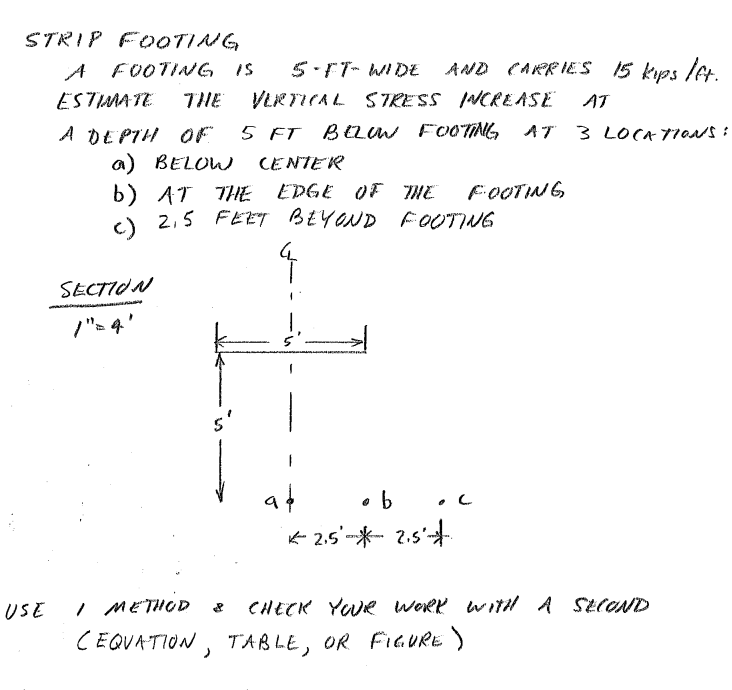 STRIP FOOTING
A FOOTING IS 5-FT-WIDE AND CARRIES 15 kips/ft.
ESTIMATE THE VERTICAL STRESS INCREASE AT
A DEPTH OF 5 FT BELOW FOOTING AT 3 LOCATIONS:
a) BELOW CENTER
b) AT THE EDGE OF THE FOOTING
c) 2.5 FEET BEYOND FOOTING
℄
SECTION
1"=4'
5'
5'
a b c
2.5' 2.5'
USE 1 METHOD & CHECK YOUR WORK WITH A SECOND
(EQUATION, TABLE, OR FIGURE)